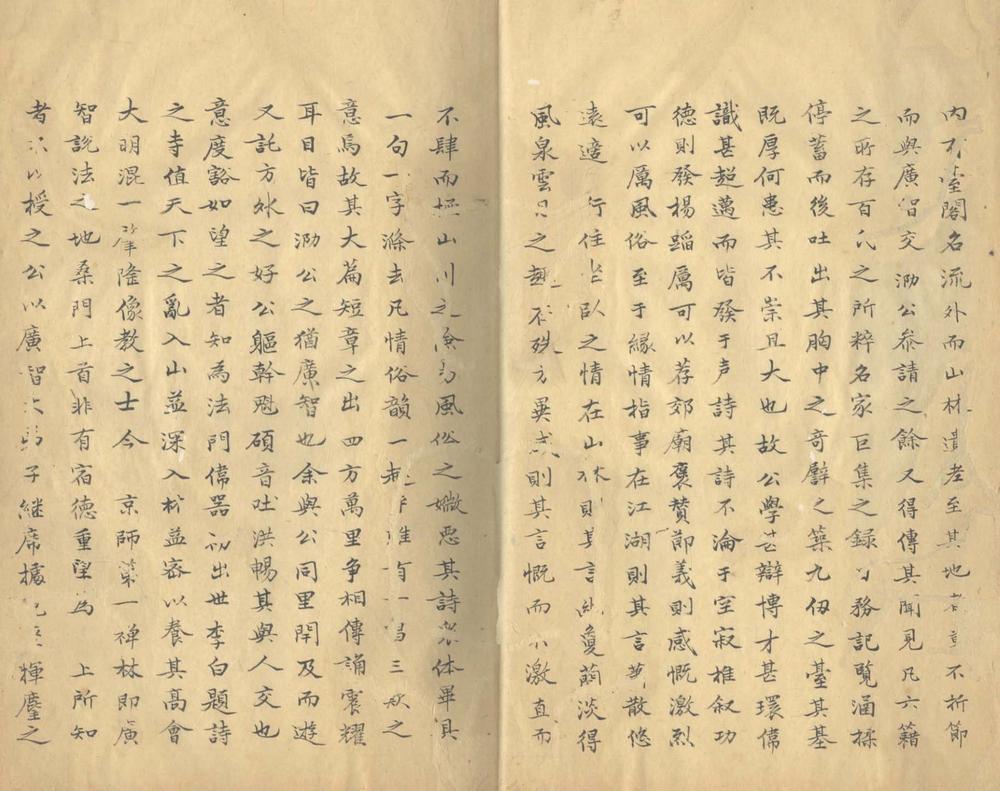 內 臺閣名流外而山林遺老至其地者 不折節
而與廣智交泐公叅請之餘又得傳其聞見凡六籍
之所存百氏之所粹名家巨集之錄 務記覽涵揉
停蓄而後吐出其胸中之奇譬之築九仞之臺其基
既厚何患其不崇且大也故公學甚辯博才甚瓌偉
識甚超邁而皆發于声詩其詩不淪于空寂惟叙功
德則發揚蹈厲可以荐郊廟褒賛節義則感慨激烈
可以厲風俗至于緣情指事在江湖則其言蕭散悠
遠適 行住坐臥之情在山林則其言幽夐蕳淡得
風泉雲月之趣 殊方異 則其言慨而不激直而
不肆而 山川之 風俗之媺惡其詩眾体畢具
一句一字滌去凡情俗韻一 唯 有一唱三歎之
意焉故其大篇短章之出四方萬里争相傳誦震耀
耳目皆曰泐公之猶廣智也余與公同里閈及而遊
又託方外之好公軀幹魁碩音吐洪暢其與人交也
意度豁如望之者知為法門偉器初出世李白題詩
之寺值天下之亂入山益深入林益密以養其高會
大明混一肇隆像教之士今 京師第一禅林即廣
智說法之地桑門上首非有宿德重望為 上所知
者 以授之公以廣智 子継席據 揮麈之